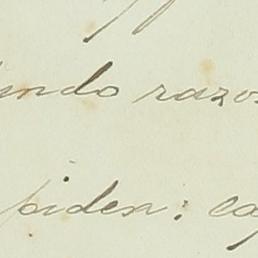 undo razo
piden; ca